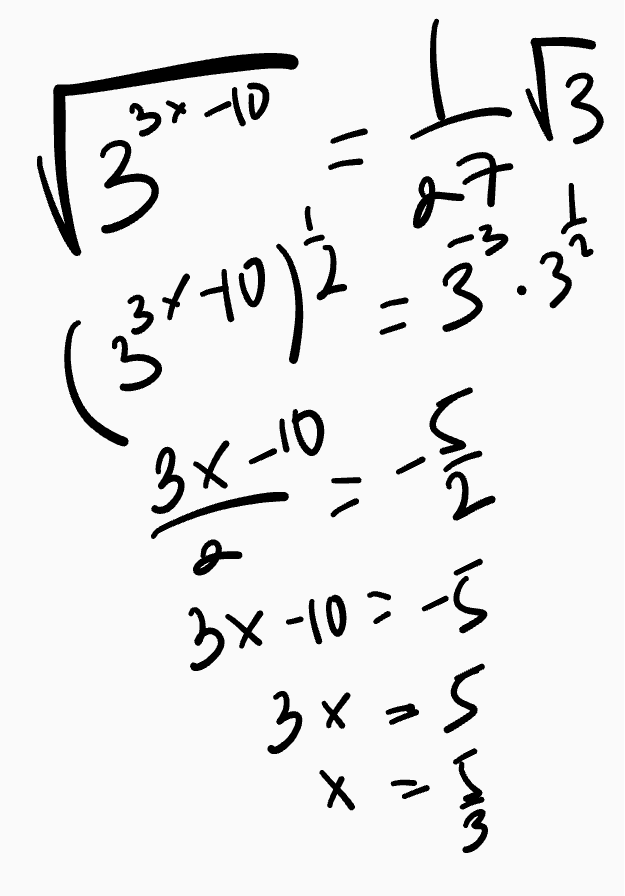 √(3^(3x-10)) = 1/27 √3
(3^(3x-10))^(1/2) = 3^(-3) · 3^(1/2)
(3x-10)/2 = -5/2
3x-10 = -5
3x = 5
x = 5/3